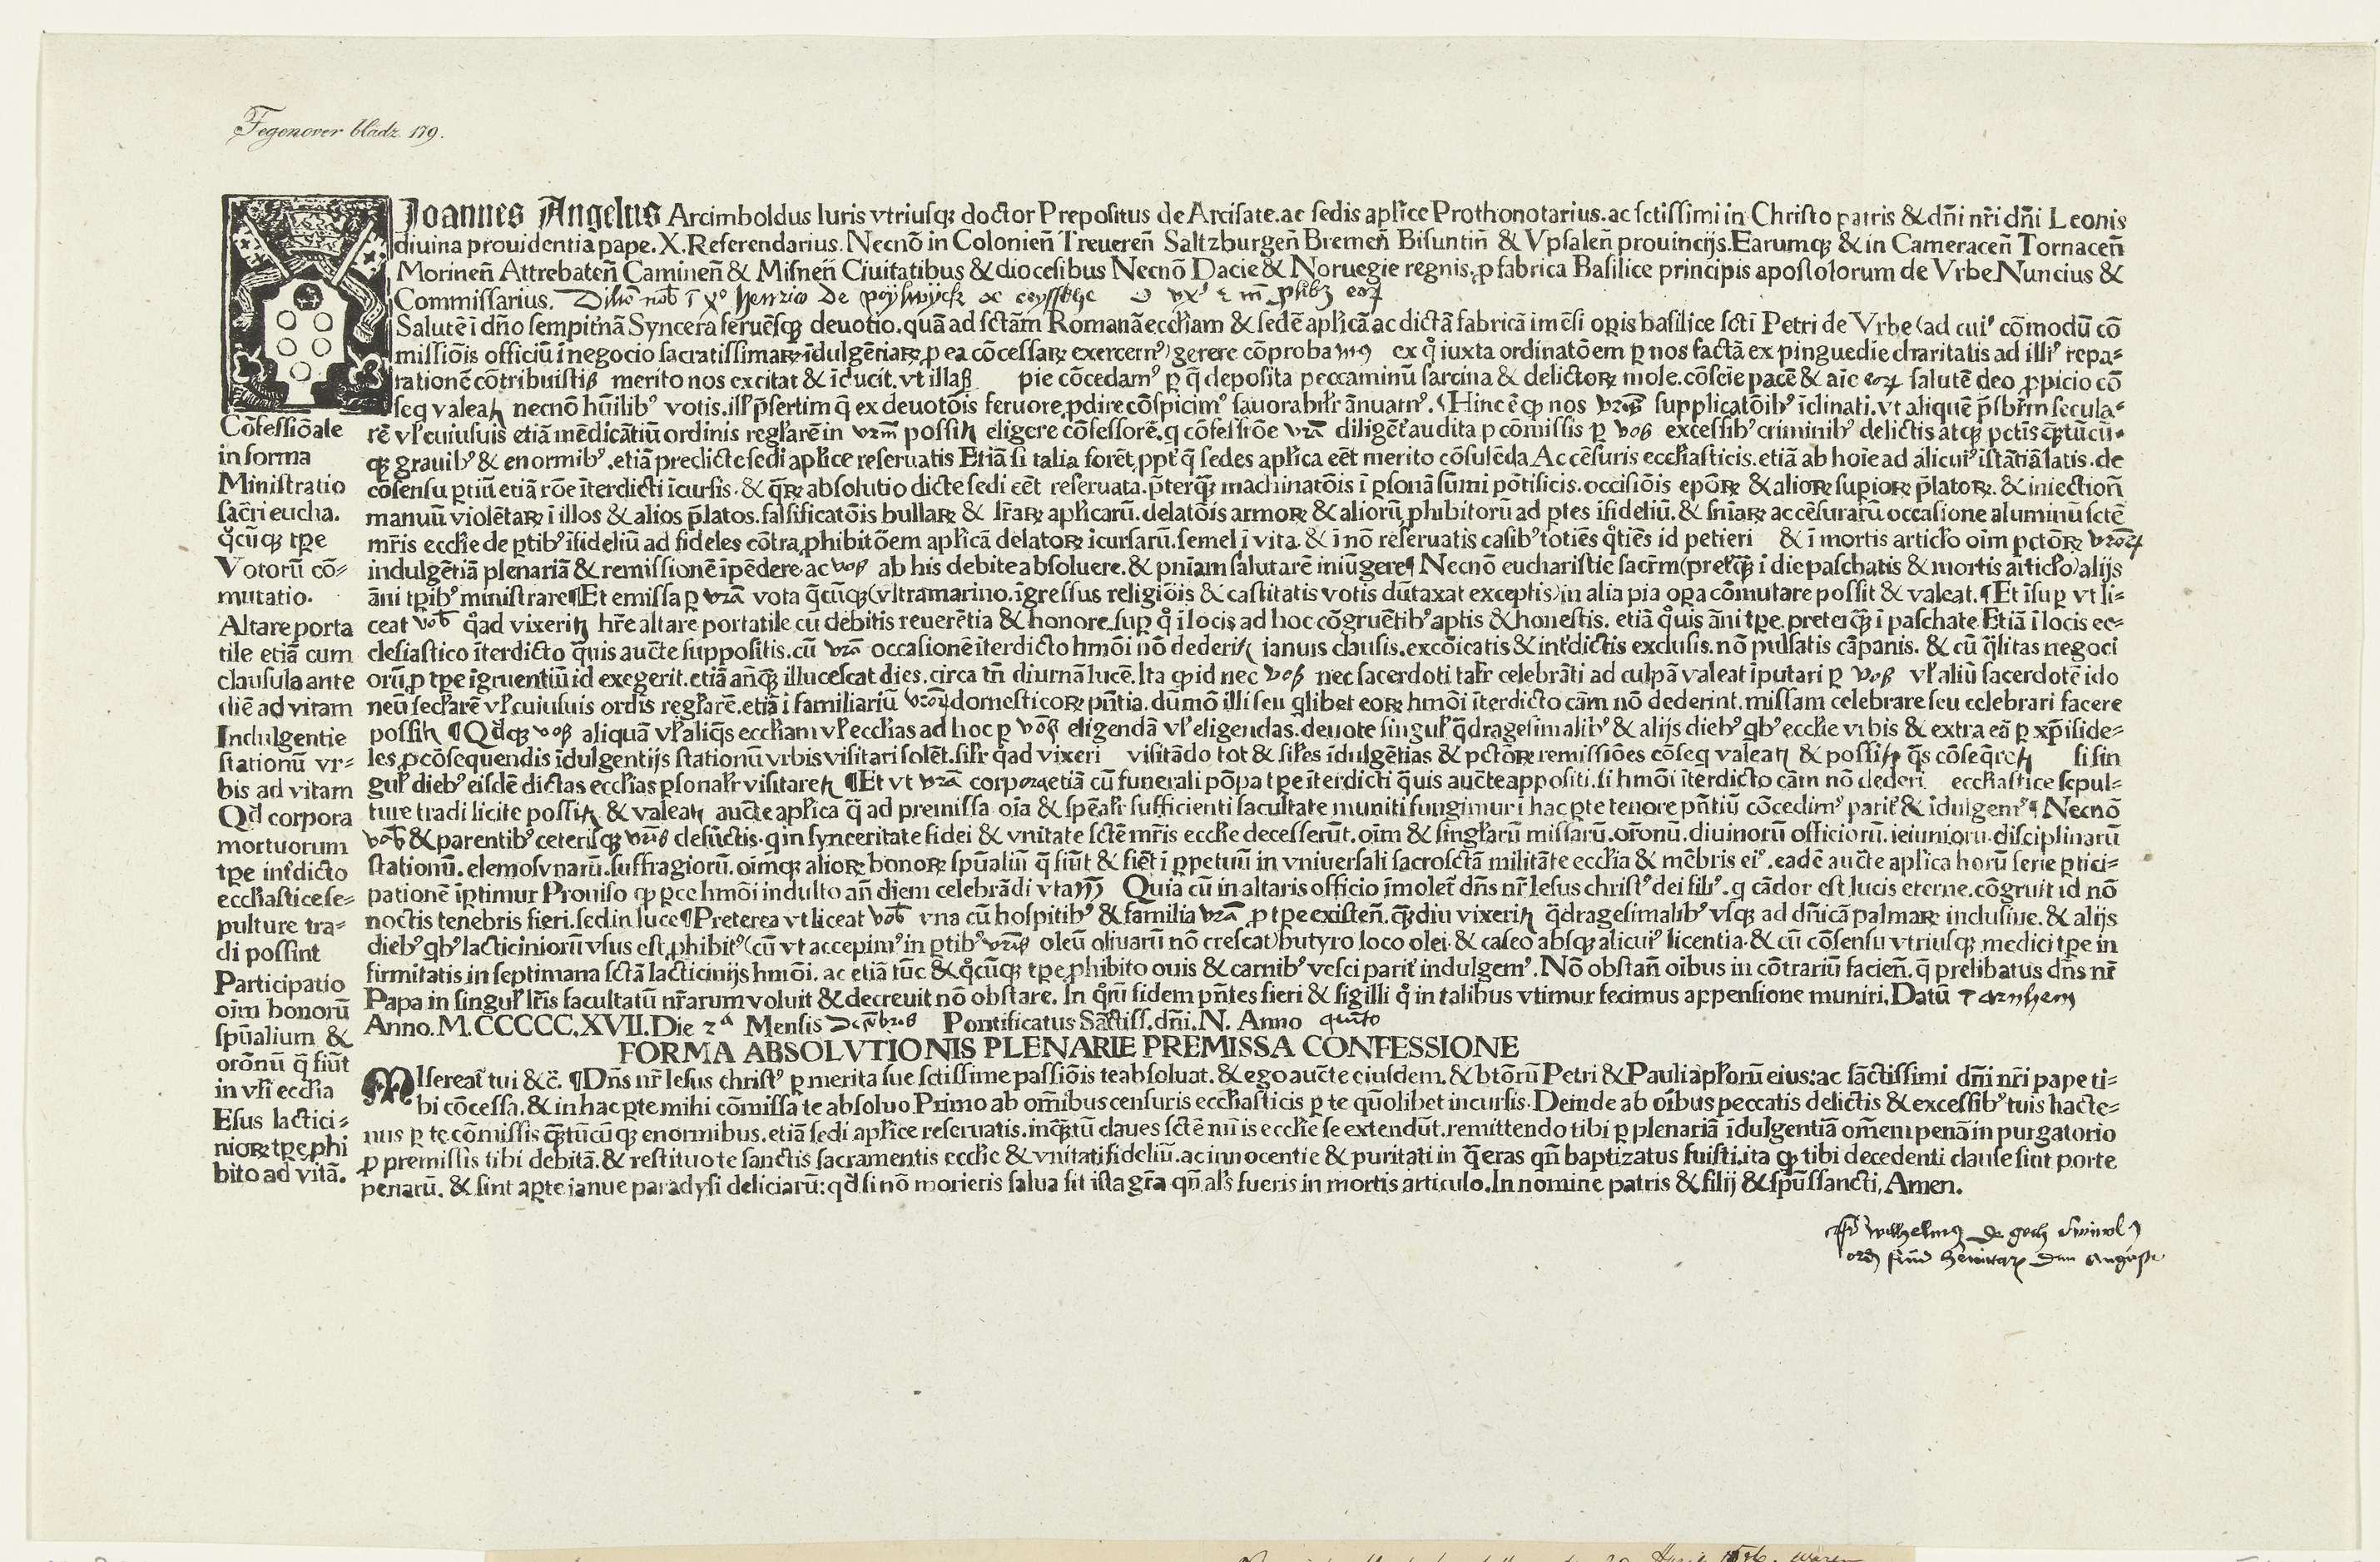 Tegenover bladz. 179.
Joannes Angelus Arcimboldus Iuris vtriusq; doctor Prepositus de Arcisate. ac sedis apl'ice Prothonotarius. ac sctissimi in Christo patris & dñi nr̃i dñi Leonis
diuina prouidentia pape. X. Referendarius. Necnō in Colonieñ Treuereñ Saltzburgeñ Bremeñ Bisuntiñ & Vpsaleñ prouincijs. Earumq; & in Cameraceñ Tornaceñ
Morineñ Attrebateñ Camineñ & Misneñ Ciuitatibus & diocesibus Necnō Dacie & Noruegie regnis, p fabrica Basilice principis apostolorum de Vrbe Nuncius &
Commissarius.
Salutē ī dño sempit'nā Syncera feruēsq; deuotio. quā ad sctām Romanā eccl'iam & sedē apl'icā ac dictā fabricā imēsi opis basilice scti Petri de Vrbe (ad cui⁹ cōmodū cō
missiōis officiū ī negocio sacratissimaꝝ īdulgētiaꝝ, p ea cōcessaꝝ exercem⁹) gerere cōproba ex q̊ iuxta ordinatōem p nos factā ex pinguedie charitatis ad illi⁹ repa-
rationē cōtribuistis merito nos excitat & īducit. vt illa pie cōcedam⁹ p q̄ deposita peccaminū sarcina & delictoꝝ mole. cōscie pacē & aīe salutē deo ppicio cō
seq valea necnō hūilib⁹ votis. ill' p̄sertim q̄ ex deuotōis feruore, pdire cōspicim⁹ fauorabilr̄ ānuam⁹. Hinc ē q nos supplicatōib⁹ īclinati. vt aliquē p̄sbr̄m secula-
rē vl' cuiusuis etiā mēdicātiū ordinis regl'arē in possi eligere cōfessorē. q cōfessiōe diligēt' audita p cōmissis p excessib⁹ criminib⁹ delictis atq; pctīs q̄tūcū-
q; grauib⁹ & enormib⁹. etiā predicte sedi apl'ice reseruatis Etiā si talia forēt, ppt' q̄ sedes apl'ica eēt merito cōsulēda Ac cēsuris eccl'iasticis. etiā ab hoīe ad alicui⁹ īstātiā latis. de
cōsensu ptiū etiā rōe īterdicti īcursis. & q̄ꝝ absolutio dicte sedi eēt reseruata. p̄terq̄ machinatōis ī psonā sūmi pōtificis. occisiōis epōꝝ & alioꝝ supioꝝ p̄latoꝝ. & iniectioñ
manuū violētaꝝ ī illos & alios p̄latos. falsificatōis bullaꝝ & lr̄aꝝ apl'icarū. delatōis armoꝝ & aliorū, phibitorū ad ptes īfideliū. & snīaꝝ ac cēsurarū occasione aluminū sctē
mr̄is eccl'ie de ptib⁹ īfideliū ad fideles cōtra, phibitōem apl'icā delatoꝝ īcursarū. semel ī vita. & ī nō reseruatis casib⁹ totiēs q̊tiēs id petieri & ī mortis articl'o oīm pctōꝝ
indulgētiā plenariā & remissionē īpēdere. ac ab his debite absoluere. & pnīam salutarē iniūgere ¶ Necnō eucharistie sacr̄m (pret'q̄ ī die paschatis & mortis articl'o) alijs
āni tpib⁹ ministrare ¶ Et emissa p vota q̄cūq; (vltramarino. īgressus religiōis & castitatis votis dūtaxat exceptis) in alia pia opa cōmutare possit & valeat. ¶ Et īsup vt li-
ceat q̊ad vixeri hr̄e altare portatile cū debitis reuerētia & honore. sup q̊ ī locis ad hoc cōgruētib⁹ aptis & honestis. etiā q̊uis āni tpe. preterq̄ ī paschate. Etiā ī locis ec-
clesiastico īterdicto q̄uis aucte suppositis. cū occasionē īterdicto hmōi nō dederi ianuis clausis. excōicatis & int'dictis exclusis. nō pulsatis cāpanis. & cū q̄litas negoci
orū, p tpe īgruentiū id exegerit. etiā añq̄ illucescat dies. circa tñ diurnā lucē. Ita q id nec nec sacerdoti talr̄ celebrāti ad culpā valeat īputari p vl' aliū sacerdotē ido
neū secl'arē vl' cuiusuis ordīs regl'arē. etiā ī familiariū domesticoꝝ pñtia. dūmō illi seu qlibet eoꝝ hmōi īterdicto cām nō dederint. missam celebrare seu celebrari facere
possi ¶ Qdq; aliquā vl' aliq̄s eccl'iam vl' eccl'ias ad hoc p eligendā vl' eligendas. deuote singul' q̄dragesimalib⁹ & alijs dieb⁹ qb⁹ eccl'ie vrbis & extra eā p xp̄ifide-
les, p cōsequendis īdulgentijs stationū vrbis visitari solēt. silr̄ q̊ad vixeri visitādo tot & sil'es īdulgētias & pctōꝝ remissiōes cōseq valea & possi q̄s cōseq̄re si sin
gul' dieb⁹ eisdē dictas eccl'ias psonalr̄ visitare ¶ Et vt corpora etiā cū funerali pōpa tpe īterdicti q̄uis aucte appositi. si hmōi īterdicto cām nō dederi eccl'iastice sepul-
ture tradi licite possi & valea aucte apl'ica q̄ ad premissa oīa & spēalr̄ sufficienti facultate muniti fungimur ī hac pte tenore pñtiū cōcedim⁹ parit' & īdulgem⁹ ¶ Necnō
& parentib⁹ ceterisq; defūctis. q in synceritate fidei & vnitate sctē mr̄is eccl'ie decesserūt. oīm & singl'arū missarū. or̄onū. diuinorū officiorū. ieiuniorū. disciplinarū
stationū. elemosynarū. suffragiorū. oīmq; alioꝝ bonoꝝ spūaliū q̄ fiūt & fiēt ī ppetuū in vniuersali sacrosctā militāte eccl'ia & mēbris ei⁹. eadē aucte apl'ica horū serie ptici-
pationē īptimur Prouiso q pce hmōi indulto añ diem celebrādi vta Quia cū in altaris officio īmolet' dñs nr̄ Iesus christ⁹ dei fili⁹. q cādor est lucis eterne. cōgruit id nō
noctis tenebris fieri. sed in luce ¶ Preterea vt liceat vna cū hospitib⁹ & familia, p tpe existeñ. q̄diu vixeri q̄dragesimalib⁹ vsq; ad dñicā palmaꝝ inclusiue. & alijs
dieb⁹ qb⁹ lacticiniorū vsus est, phibit⁹ (cū vt accepim⁹ in ptib⁹ oleū oliuarū nō crescat) butyro loco olei. & caseo absq; alicui⁹ licentia. & cū cōsensu vtriusq; medici tpe in
firmitatis in septimana sctā lacticinijs hmōi. ac etiā tūc & q̊cūq; tpe, phibito ouis & carnib⁹ vesci parit' indulgem⁹. Nō obstañ oībus in cōtrariū facieñ. q̄ prelibatus dñs nr̄
Papa in singul' lr̄is facultatū nr̄arum voluit & decreuit nō obstare. In q̊rū fidem pñtes fieri & sigilli q̊ in talibus vtimur fecimus appensione muniri. Datū Arnhem
Anno. M. CCCCC. XVII. Die 2ª Mensis Pontificatus Sāctiss. dñi. N. Anno quīto
FORMA ABSOLVTIONIS PLENARIE PREMISSA CONFESSIONE
MIsereat' tui &c̄. ¶ Dñs nr̄ Iesus christ⁹ p merita sue sctissime passiōis te absoluat. & ego aucte eiusdem. & btōrū Petri & Pauli apl'orū eius: ac sāctissimi dñi nr̄i pape ti-
bi cōcessa. & in hac pte mihi cōmissa te absoluo Primo ab om̄ibus censuris eccl'iasticis p te qūolibet incursis. Deinde ab oībus peccatis delictis & excessib⁹ tuis hacte-
nus p te cōmissis q̄tūcūq; enormibus. etiā sedi apl'ice reseruatis. inq̄tū claues sctē mr̄is eccl'ie se extendūt. remittendo tibi p plenariā īdulgentiā om̄em penā in purgatorio
p premissis tibi debitā. & restituo te sanctis sacramentis eccl'ie & vnitati fideliū. ac innocentie & puritati in q̄ eras qñ baptizatus fuisti. ita q tibi decedenti clause sint porte
penarū. & sint apte ianue paradysi deliciarū: qd si nō morieris salua sit ista gr̄a qñ al's fueris in mortis articulo. In nomine patris & filij & spūssancti, Amen.
Cōfessiōale
in forma
Ministratio
sacr̄i eucha.
q̊cūq; tpe
Votorū cō-
mutatio.
Altare porta
tile etiā cum
clausula ante
diē ad vitam
Indulgentie
stationū vr-
bis ad vitam
Qd corpora
mortuorum
tpe int'dicto
eccl'iastice se-
pulture tra-
di possint
Participatio
oīm bonorū
spūalium &
orōnū q̄ fiūt
in vl'i eccl'ia
Esus lactici-
nioꝝ tpe phi
bito ad vitā.